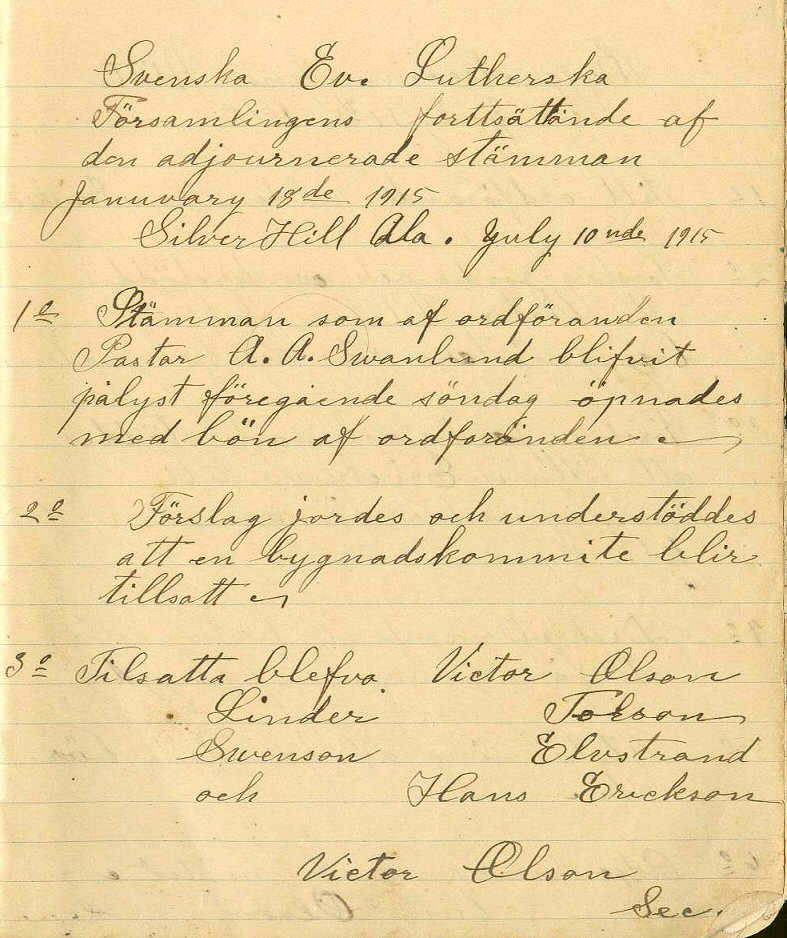 Svenska Ev. Lutherska
Församlingens forttsättande af
den adjournerade stämman
Januvary 18de 1915
Silver Hill Ala. July 10nde 1915
1o Stämman som af ordföranden
Pastor A. A. Swanlund blifvit
pålyst föregående söndag öpnades
med bön af ordföranden.
2o Förslag jordes och understöddes
att en bygnadskommite blir
tillsatt
3o Tilsatta blefvo Victor Olson
Linder Torson
Swenson Elvstrand
och Hans Erickson
Victor Olson
Sec.